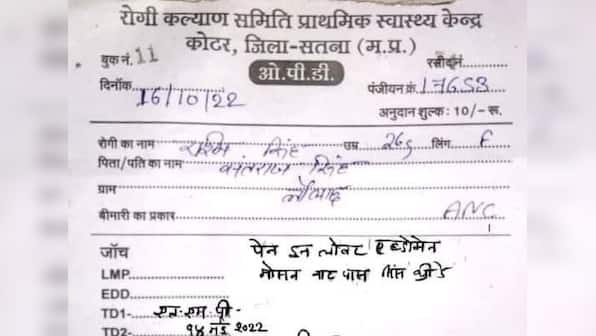 रोगी कल्याण समिति प्राथमिक स्वास्थ्य केन्द्र
कोटर, जिला-सतना (म.प्र.)
बुक नं. 11 रसीद नं.
ओ.पी.डी.
दिनाँक 16/10/22 पंजीयन क्रं. 17653
अनुदान शुल्क: 10/- रू.
रोगी का नाम रश्मि सिंह उम्र 26 लिंग F
पिता/पति का नाम सिंह
ग्राम
बीमारी का प्रकार ANC
जॉंच पेन इन लोवर एब्डोमेन
LMP. मोसन नाट पास सिंस
EDD.
TD1- एल एम पी-
TD2- १४ मई २०२२